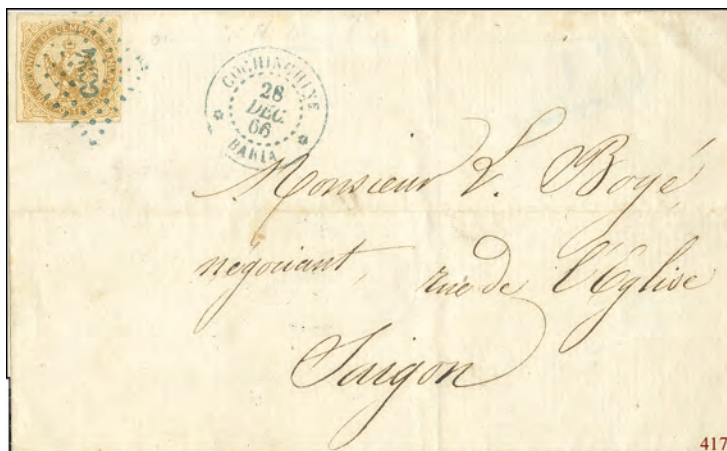 COCHINCHINE
28
DEC.
66
BARIA
Monsieur L. Boyé
négociant, rue de l'Eglise
Saigon
417